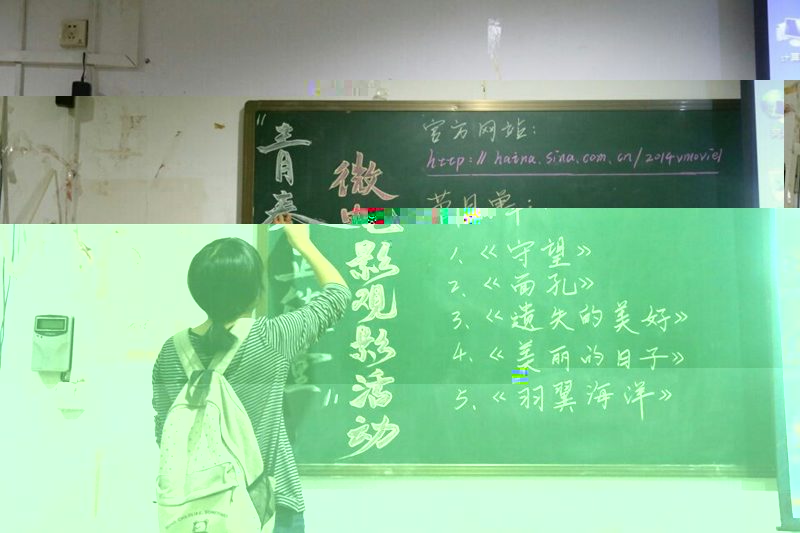 “青春
微电影观影活动
官方网站：
http://haina.sina.com.cn/2014vmovie1
节目单：
1、《守望》
2、《面孔》
3、《遗失的美好》
4、《美丽的日子》
5、《羽翼海洋》